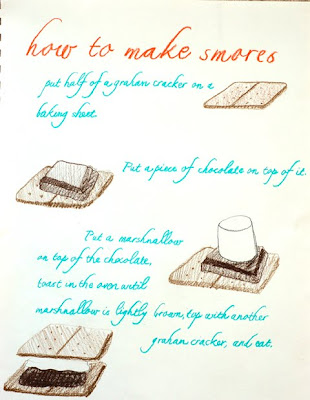 how to make smores
put half of a graham cracker on a
baking sheet.
Put a piece of chocolate on top of it.
Put a marshmallow
on top of the chocolate,
toast in the oven until
marshmallow is lightly brown, top with another
graham cracker, and eat.